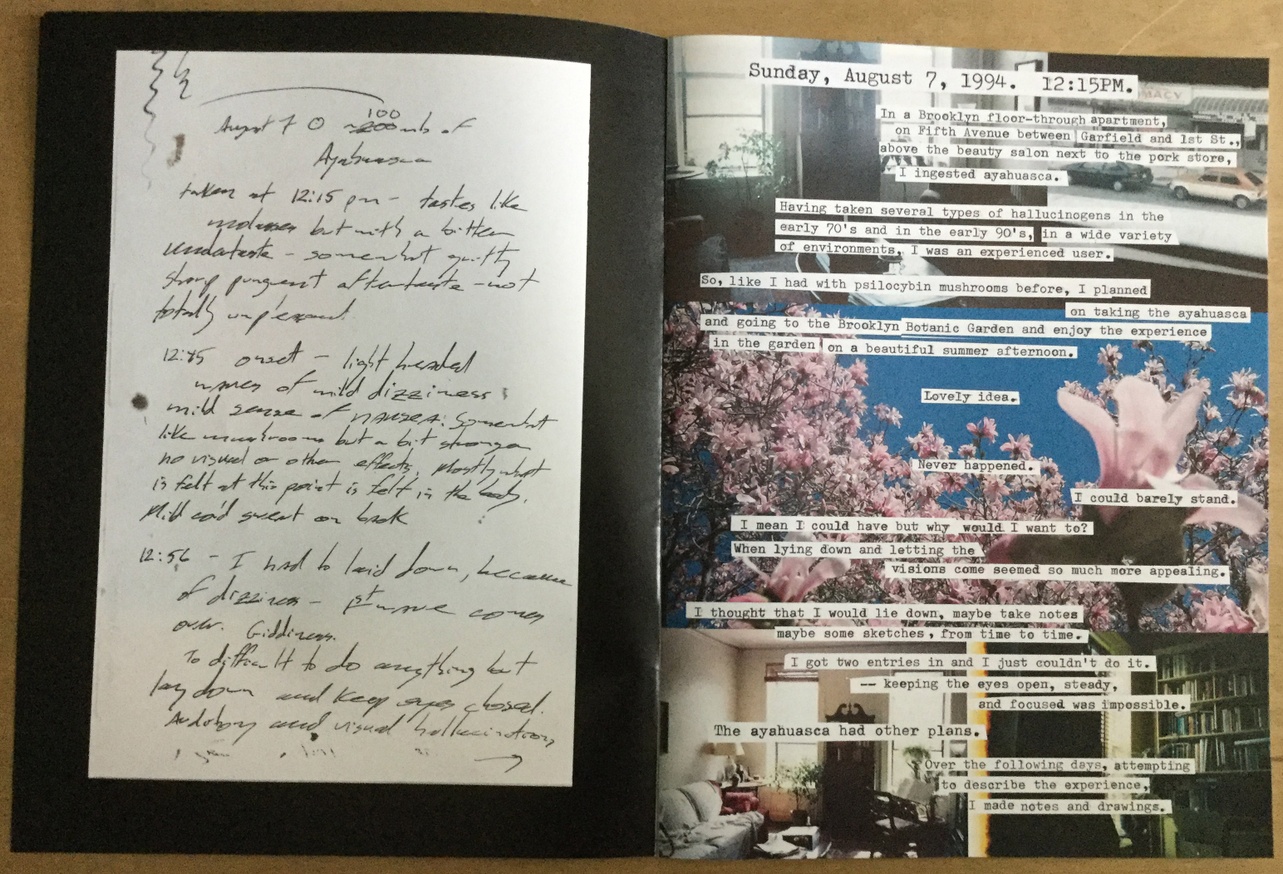 August 7 100
~200 mls of
Ayahuasca
taken at 12:15 pm - tastes like
molasses but with a bitter
undertaste - somewhat
sharp pungent aftertaste - not
totally
12:45 onset - light headed
waves of mild dizziness
mild sense of nausea. Somewhat
like mushrooms but a bit stronger
no visual or other effects, Mostly what
is felt at this point is felt in the body.
Mild cold sweat on back
12:56 - I had to laid down, because
of dizziness - 1st wave comes
over. Giddiness.
To difficult to do anything but
lay down and keep eyes closed.
Audotory and visual hallucinations
Sunday, August 7, 1994. 12:15PM.
MACY
In a Brooklyn floor-through apartment,
on Fifth Avenue between Garfield and 1st St.,
above the beauty salon next to the pork store,
I ingested ayahuasca.
Having taken several types of hallucinogens in the
early 70's and in the early 90's, in a wide variety
of environments, I was an experienced user.
So, like I had with psilocybin mushrooms before, I planned
on taking the ayahuasca
and going to the Brooklyn Botanic Garden and enjoy the experience
in the garden on a beautiful summer afternoon.
Lovely idea.
Never happened.
I could barely stand.
I mean I could have but why would I want to?
When lying down and letting the
visions come seemed so much more appealing.
I thought that I would lie down, maybe take notes
maybe some sketches, from time to time.
I got two entries in and I just couldn't do it.
-- keeping the eyes open, steady,
and focused was impossible.
The ayahuasca had other plans.
Over the following days, attempting
to describe the experience,
I made notes and drawings.